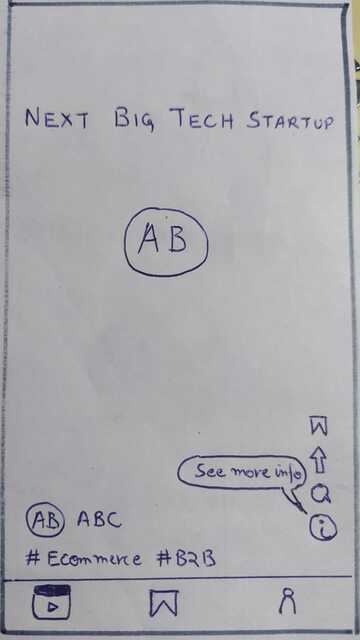 NEXT BIG TECH STARTUP
AB
See more info
i
AB ABC
# Ecommerce #B2B